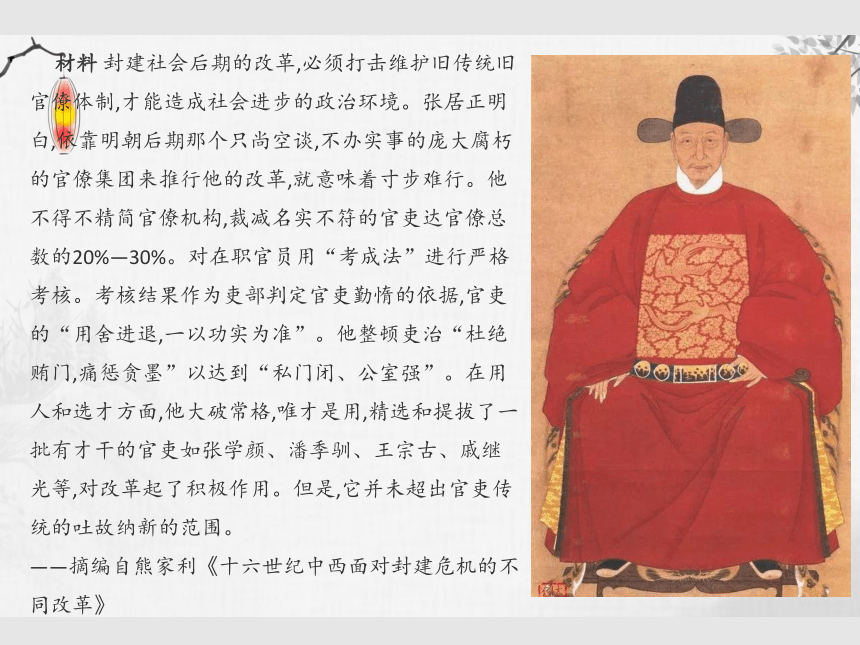 材料 封建社会后期的改革,必须打击维护旧传统旧
官僚体制,才能造成社会进步的政治环境。张居正明
白,依靠明朝后期那个只尚空谈,不办实事的庞大腐朽
的官僚集团来推行他的改革,就意味着寸步难行。他
不得不精简官僚机构,裁减名实不符的官吏达官僚总
数的20%—30%。对在职官员用“考成法”进行严格
考核。考核结果作为吏部判定官吏勤惰的依据,官吏
的“用舍进退,一以功实为准”。他整顿吏治“杜绝
贿门,痛惩贪墨”以达到“私门闭、公室强”。在用
人和选才方面,他大破常格,唯才是用,精选和提拔了一
批有才干的官吏如张学颜、潘季驯、王宗古、戚继
光等,对改革起了积极作用。但是,它并未超出官吏传
统的吐故纳新的范围。
——摘编自熊家利《十六世纪中西面对封建危机的不
同改革》